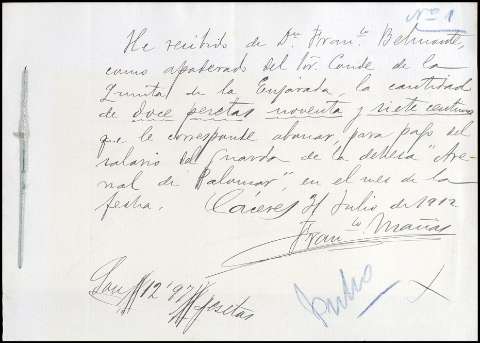 Nº 1
He recibido de Dn. Franco. Belmonte,
como apoderado del Sor. Conde de la
Quinta de la Enjarada, la cantidad
de doce pesetas noventa y siete centimos
que le corresponde abonar, para pago del
salario del Guarda de la dehesa "Are-
nal de Palomar", en el mes de la
fecha. Caceres 31 Julio de 1912
Franco. Mañas
Son 12'97 pesetas
Julio